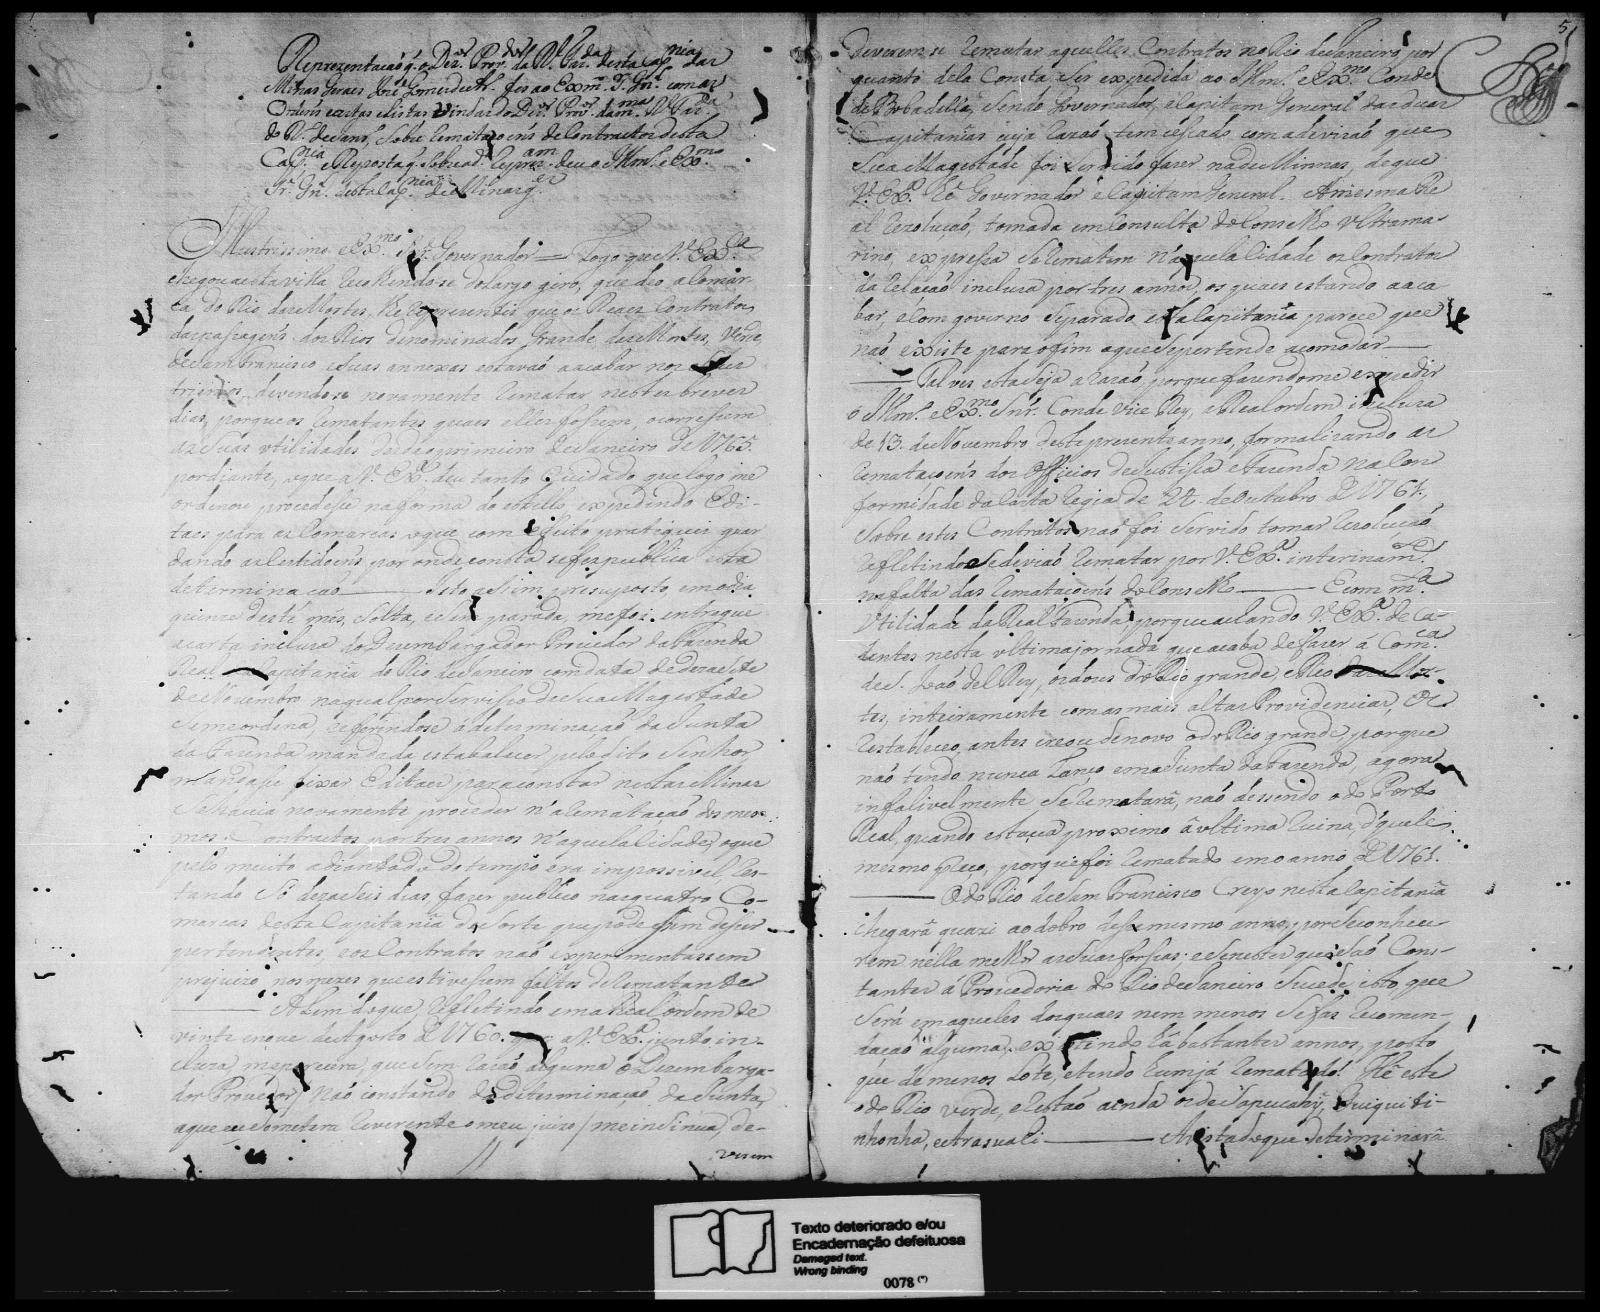 Reprezentação q. o Dez.or Prov.or da R. Faz.da desta Cap.nia das
Minas Geraes José Gomes de Ar.º fes ao Exm.º S. Gn.al com as
Ordens cartas e listas vindas do Dez.or Prov.or da m.ma R. Faz.da
do R. de Janr.º, sobre Remataçoens de Contractos desta
Cap.nia e Reposta q. sobre a d.ª Reprez.am deu o Illm.º e Ex.mo
Sr. Gn.al desta Cap.nia de Minas g.es
Illustrissimo e Ex.mo Sr. Governador — Logo que V. Ex.ca
chegou a esta villa recolhendo-se do largo giro, que deo a comar
ca do Rio das Mortes, lhe reprezentei que os Reaes Contratos
das passagens dos Rios denominados, Grande, das Mortes, Verde,
de Sam Francisco e suas annexas estavaõ a acabar nos seus
trienios, devendo-se novamente rematar nestes breves
dias, porque os rematantes quaes elles fossem, corressem
as suas utilidades desde o primeiro de Janeiro de 1765.
por diante, o que a V. Ex.ª deu tanto cuidado que logo me
ordenou procedesse na forma do estillo, expedindo Edi-
taes para as Comarcas o que com effeito pratiquei guar
dando as certidoens por onde consta se fes publica esta
determinaçaõ — Isto assim presuposto, em o dia
quinze deste mes, solta, e sem parada, me foi entregue
a carta incluza do Dezembargador Provedor da Fazenda
Real da Capitania do Rio de Janeiro com data de dezasete
de Novembro na qual por serviço de Sua Magestade
se me ordena, referindose á determinaçaõ da Junta
da Fazenda mandada estabalecer pelo dito Senhor,
mandasse fixar Editaes para constar nestas Minas
Se havia novamente proceder n'a rematação dos mes-
mos Contractos por tres annos n'aquela Cidade, o que
pelo muito adiantado do tempo era impossivel, res-
tando só dezaseis dias, fazer publico nas quatro Co-
marcas desta Capitania de sorte que podessem descer
pertendentes, e os Contratos naõ experimentassem
prejuizo, nos mezes que estivessem faltos de Rematantes
— Alem de que, refletindo em a Real ordem de
vinte e nove de Agosto de 1760. que a V. Ex.ª junto in-
cluza, me pareceu, que sem razaõ alguma o Dezembarga-
dor Provedor / Naõ constando da determinaçaõ da Junta,
a que eu Sometera reverente o meu juizo / me insinua, de-
verem
5
Deverem-se rematar aquelles Contratos no Rio de Janeiro, por
quanto dela Consta Ser expedida ao Illm.º e Ex.mo Conde
de Bobadella, sendo Governador, e Capitam General das duas
Capitanîas cuja razaõ tem cessado com a devizaõ que
Sua Magestade foi servido fazer na de Minnas, de que
V. Ex.ª hé Governador e Capitam General. A mesma Re
al rezoluçaõ, tomada em Consulta do Conselho Ultrama-
rino, expressa se rematem n'aquela Cidade os Contratos
da relaçaõ incluza por tres annos, os quaes estando a aca
bar, e com governo separado, esta Capitania parece que
naõ existe para o fim a que se pertende acomodar —
— Tal ves esta seja a razaõ, porque fazendome expedir
o Illm.º e Ex.mo Snr. Conde Vice Rey, a Real ordem incluza
de 13. de Novembro deste prezente anno, formalizando as
rematacoens dos Officios de Justissa e Fazenda na Con
formidade da Carta Regia de 24. de Outubro de 1761.
Sobre estes Contratos naõ foi servido tomar rezoluçaõ
refletindo se deviaõ rematar por V. Ex.ª interinam.te
na falta das rematacoens do Conselho — E com m.ta
Utilidade da Real Fazenda, porque zelando V. Ex.ª de Ca-
dentes nesta ultima jornada que acaba de fazer á Com.ca
de S. Joaõ del Rey, os dous do Rio grande, e Rio das Mor-
tes, inteiramente com as mais altas Providencias, os
restableceo, antes creou de novo o do Rio grande, porque
naõ tendo nunca Lanço em a Junta da Fazenda, agora
infalivelmente se rematarâ, naõ dessendo o do Porto
Real, quando estava proximo â ultima ruina, d'quele
mesmo preço, porque foi rematado em o anno de 1761.
— O do Rio de Sam Francisco Creyo nesta Capitania
chegarâ quazi ao dobro desse mesmo anno, por se conhece
rem nella melhor as suas forsas: e se nestes que são Cons-
tantes a Provedoria do Rio de Janeiro Sucede, isto, que
Será em aqueles dos quaes nem menos se fas recomen-
daçaõ alguma, existindo lâ bastantes annos, posto
que de menos Lote, e tendo hum já rematado! Hé este
o do Rio verde, e lá estaõ ainda os de Sapucahy, Jiquiti-
nhonha, e Arasuahi — A vista do que determinarâ
Texto deteriorado e/ou
Encadernação defeituosa
Damaged text.
Wrong binding
0078 (*)